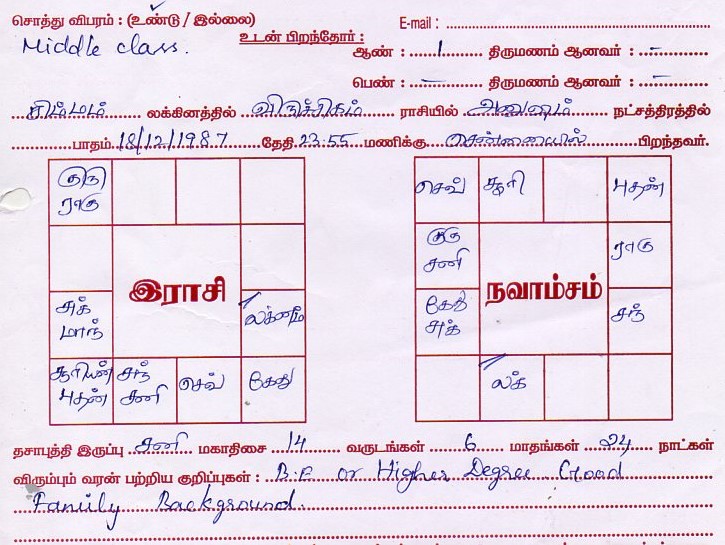 சொத்து விபரம் : (உண்டு / இல்லை) E-mail :
Middle class. உடன் பிறந்தோர் : ஆண் : 1 திருமணம் ஆனவர் : -
பெண் : - திருமணம் ஆனவர் : -
சிம்மம் லக்கினத்தில் விருச்சிகம் ராசியில் அனுஷம் நட்சத்திரத்தில்
பாதம் 18/12/1987 தேதி 23:55 மணிக்கு சென்னையில் பிறந்தவர்.
குரு
ராகு
இராசி
சுக்
மாந்
லக்னம்
சூரியன்
புதன்
சந்
சனி
செவ்
கேது
செவ்
சூரி
புதன்
குரு
சனி
ராகு
நவாம்சம்
கேது
சுக்
சந்
லக்
தசாபுத்தி இருப்பு சனி மகாதிசை 14 வருடங்கள் 6 மாதங்கள் 24 நாட்கள்
விரும்பும் வரன் பற்றிய குறிப்புகள் : B.E or Higher Degree Good
Family Background.